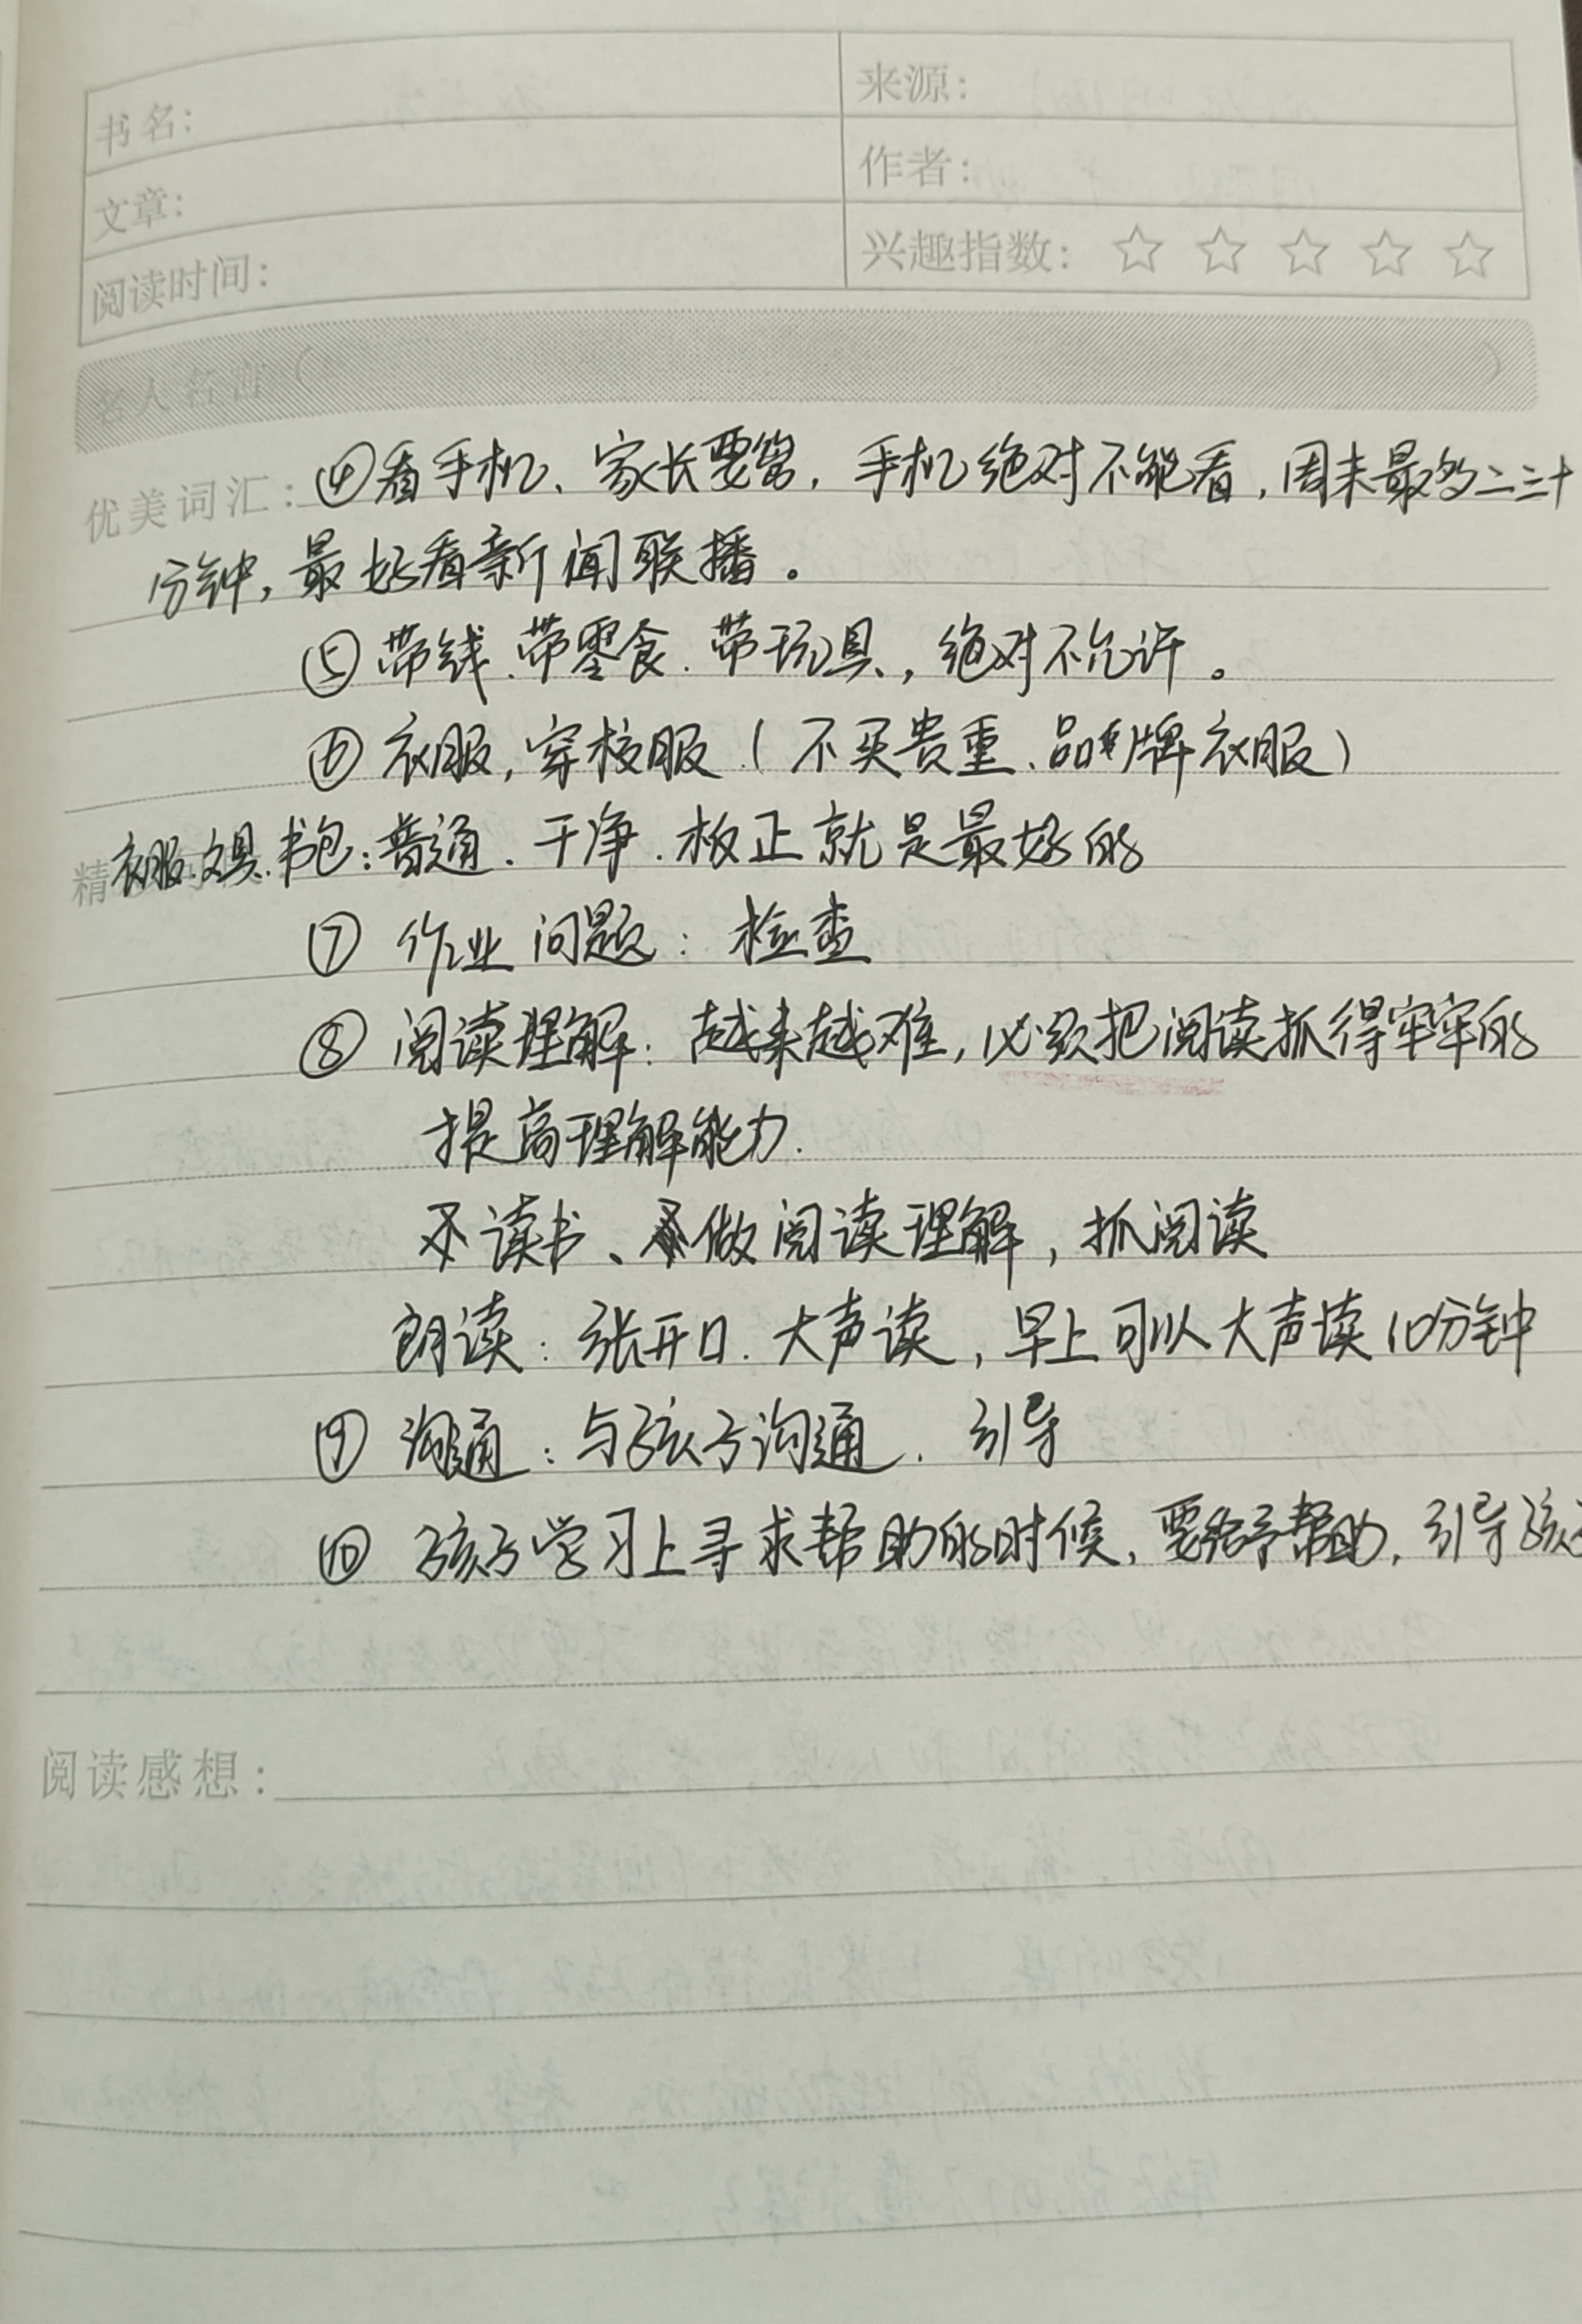 书名：
来源：
文章：
作者：
阅读时间：
兴趣指数：☆ ☆ ☆ ☆ ☆
名人名言（ ）
优美词汇：④看手机、家长要管，手机绝对不能看，周末最多二三十
分钟，最好看新闻联播。
⑤带钱.带零食.带玩具，绝对不允许。
⑥衣服，穿校服（不买贵重、品牌衣服）
精
衣服.文具.书包：普通.干净.板正就是最好的
⑦ 作业问题：检查
⑧ 阅读理解：越来越难，必须把阅读抓得牢牢的
提高理解能力.
读书、做阅读理解，抓阅读
朗读：张开口.大声读，早上可以大声读10分钟
⑨ 沟通：与孩子沟通.引导
⑩ 孩子学习上寻求帮助的时候，要给予帮助，引导孩
阅读感想：